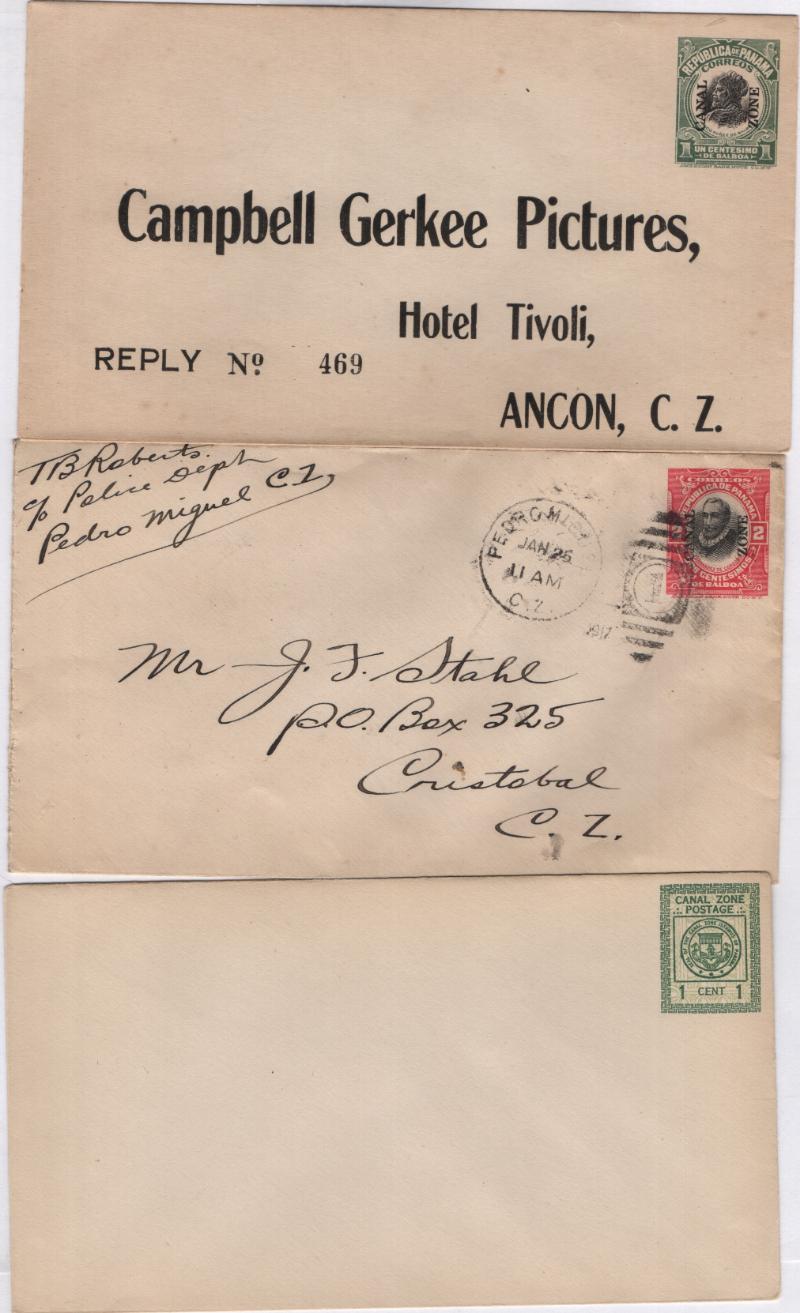 REPÚBLICA DE PANAMA
CORREOS
CANAL ZONE
1 UN CENTESIMO 1
DE BALBOA
Campbell Gerkee Pictures,
Hotel Tivoli,
REPLY Nº 469
ANCON, C. Z.
TB Roberts.
c/o Police Dept
Pedro Miguel C Z
PEDRO MIGUEL
JAN 25
11 AM
C.Z.
1917
1
CORREOS
REPUBLICA DE PANAMA
CANAL ZONE
2 2
CENTESIMOS
DE BALBOA
Mr J. F. Stahl
P.O. Box 325
Cristobal
C. Z.
CANAL ZONE
POSTAGE
SEAL OF THE CANAL ZONE ISTHMUS OF PANAMA
1 CENT 1